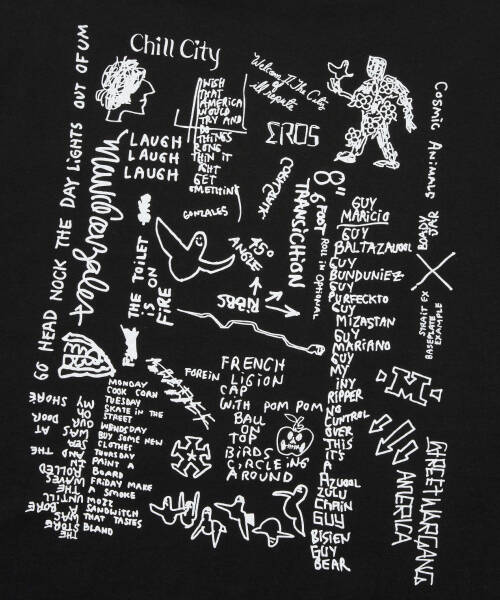 Chill City
Welcome To The City
of
ill repute
GO HEAD NOCK THE DAY LIGHTS OUT OF UM
Mark Gonzales
LAUGH
LAUGH
LAUGH
WISH
THAT
AMERICA
WOULD
TRY AND
DO
THINGS
GET
GONZALES
EROS
Cosmic Animals
8"
6 FOOT
TRANSICHTION
ROLL IN OPTIONAL
45°
ANGLE
RiBBS
THE TOILET
IS ON
FIRE
GUY
MARICIO
GUY
BALTAZAUOOL
GUY
BUNDUNIEZ
GUY
PURFECKTO
GUY
MIZASTAN
GUY
MARIANO
GUY
MY
INY
RIPPER
NO
CUNTROL
OVER
THIS
IT'S
A
AZUOOL
ZULU
CHAIN
GUY
BISIEN
GUY
BEAR
STRAIT EX
BASEPLATE
EXAMPLE
M
STREET WARGANG
AMERICA
FOREIN
FRENCH
LIGION
CAP
WITH POM POM
BALL
ON
TOP
BIRDS
CIRCLEING
AROUND
MONDAY
COOK CORN
TUESDAY
SKATE IN THE
STREET
WENDSDAY
BUY SOME NEW
CLOTHES
THURSDAY
PAINT A
BOARD
FRIDAY MAKE
A SMOKE
MOZZ
SANDWITCH
THAT TASTES
BLAND
THE
STORE
WAS
A BORE
UNTILL
THE
WAVES
ROLLED
IN
AND THE
SEA
WAS AT
OUR DOOR
OH
MY SHORE